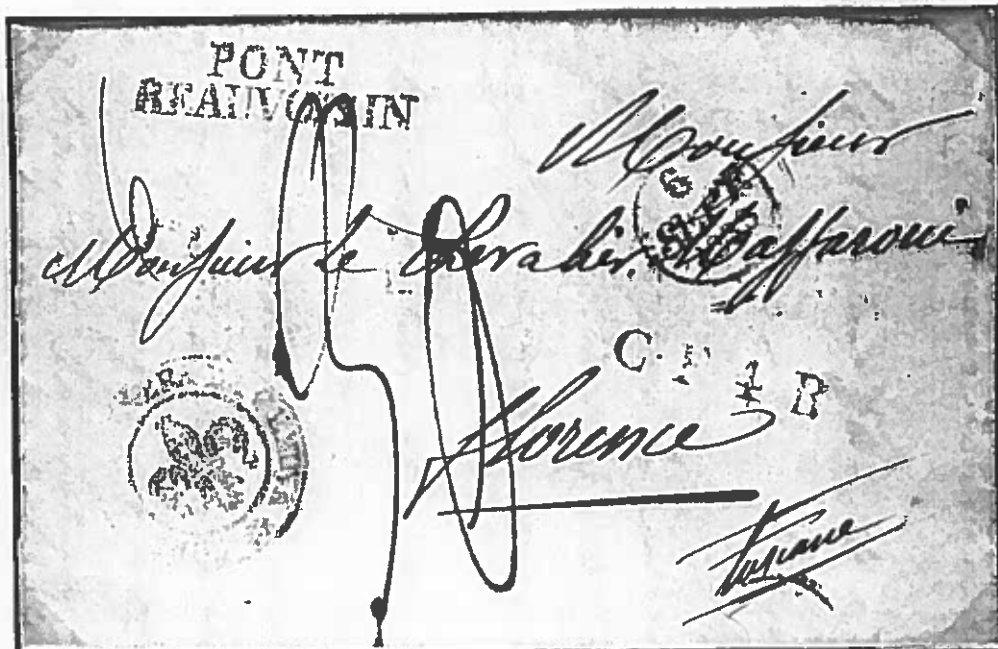 PONT
BEAUVOISIN
Monsieur
6
SEPT
Monsieur le Chevalier Caffaroni
C.F.4.R
Florence
Toscane